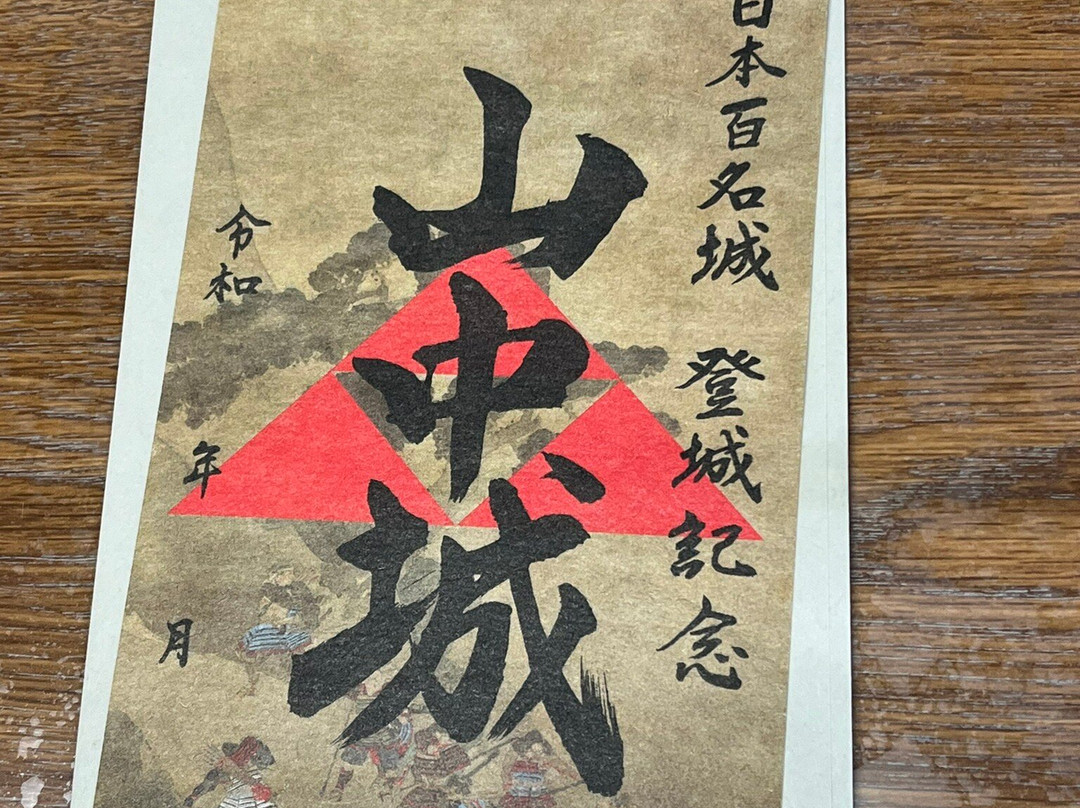 日本百名城 登城記念
山中城
令和 年 月